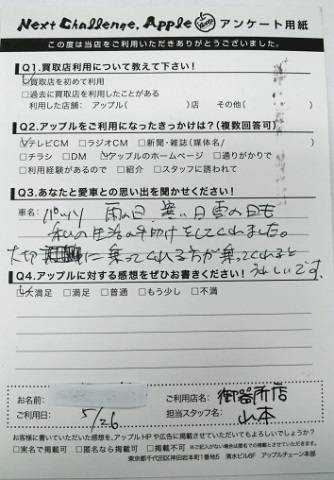 Next Challenge. Apple アンケート用紙
この度は当店をご利用いただきありがとうございました。
Q1.買取店利用について教えて下さい!
☑買取店を初めて利用
□過去に買取店を利用したことがある
利用した店舗： アップル( )店 その他( )
Q2.アップルをご利用になったきっかけは?(複数回答可)
☑テレビCM □ラジオCM □新聞・雑誌(媒体名/ )
□チラシ □DM ☑アップルのホームページ □通りがかりで
□利用経験があるので □紹介 □スタッフに誘われて
Q3.あなたと愛車との思い出を聞かせください!
車名： 雨の日、暑い日雪の日も
私の生活の手助けをしてくれました。
大切に乗ってくれる方が乗ってくれると
うれしいです。
Q4.アップルに対する感想をぜひお書きください!
☑大満足 □満足 □普通 □もう少し □不満
お名前： ご利用店名： 御器所店
ご利用日： 5/26 担当スタッフ名： 山本
お客様に書いていただいた感想を、アップルHPや広告に掲載させていただいてもよろしいでしょうか?
□実名で掲載可 □匿名なら掲載可 □掲載不可 ※ご記入がない場合は匿名での掲載とさせていただきます。
東京都千代田区神田岩本町1番地5 清水ビル6F アップルチェーン本部